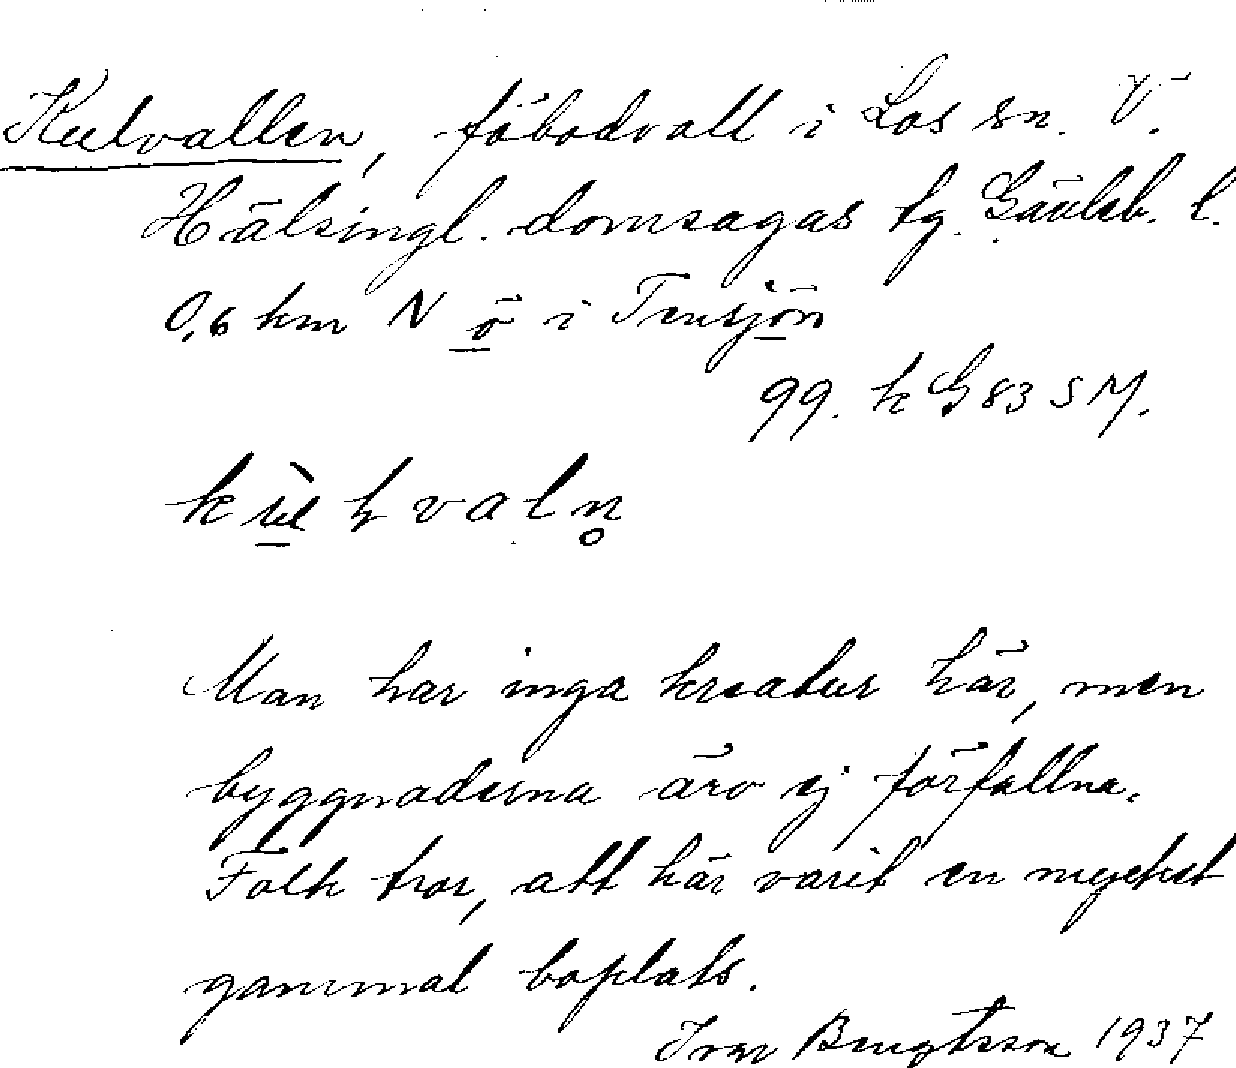 Kulvallen, fäbodvall i Los sn. V.
Hälsingl. domsagas tg. Gävleb. l.
0,6 km N ö i Tensjön
99. k G 83 S M.
valn̥
Man har inga kreatur här, men
byggnaderna äro ej förfallna.
Folk tror, att här varit en mycket
gammal boplats.
Ivar Bengtsson 1937